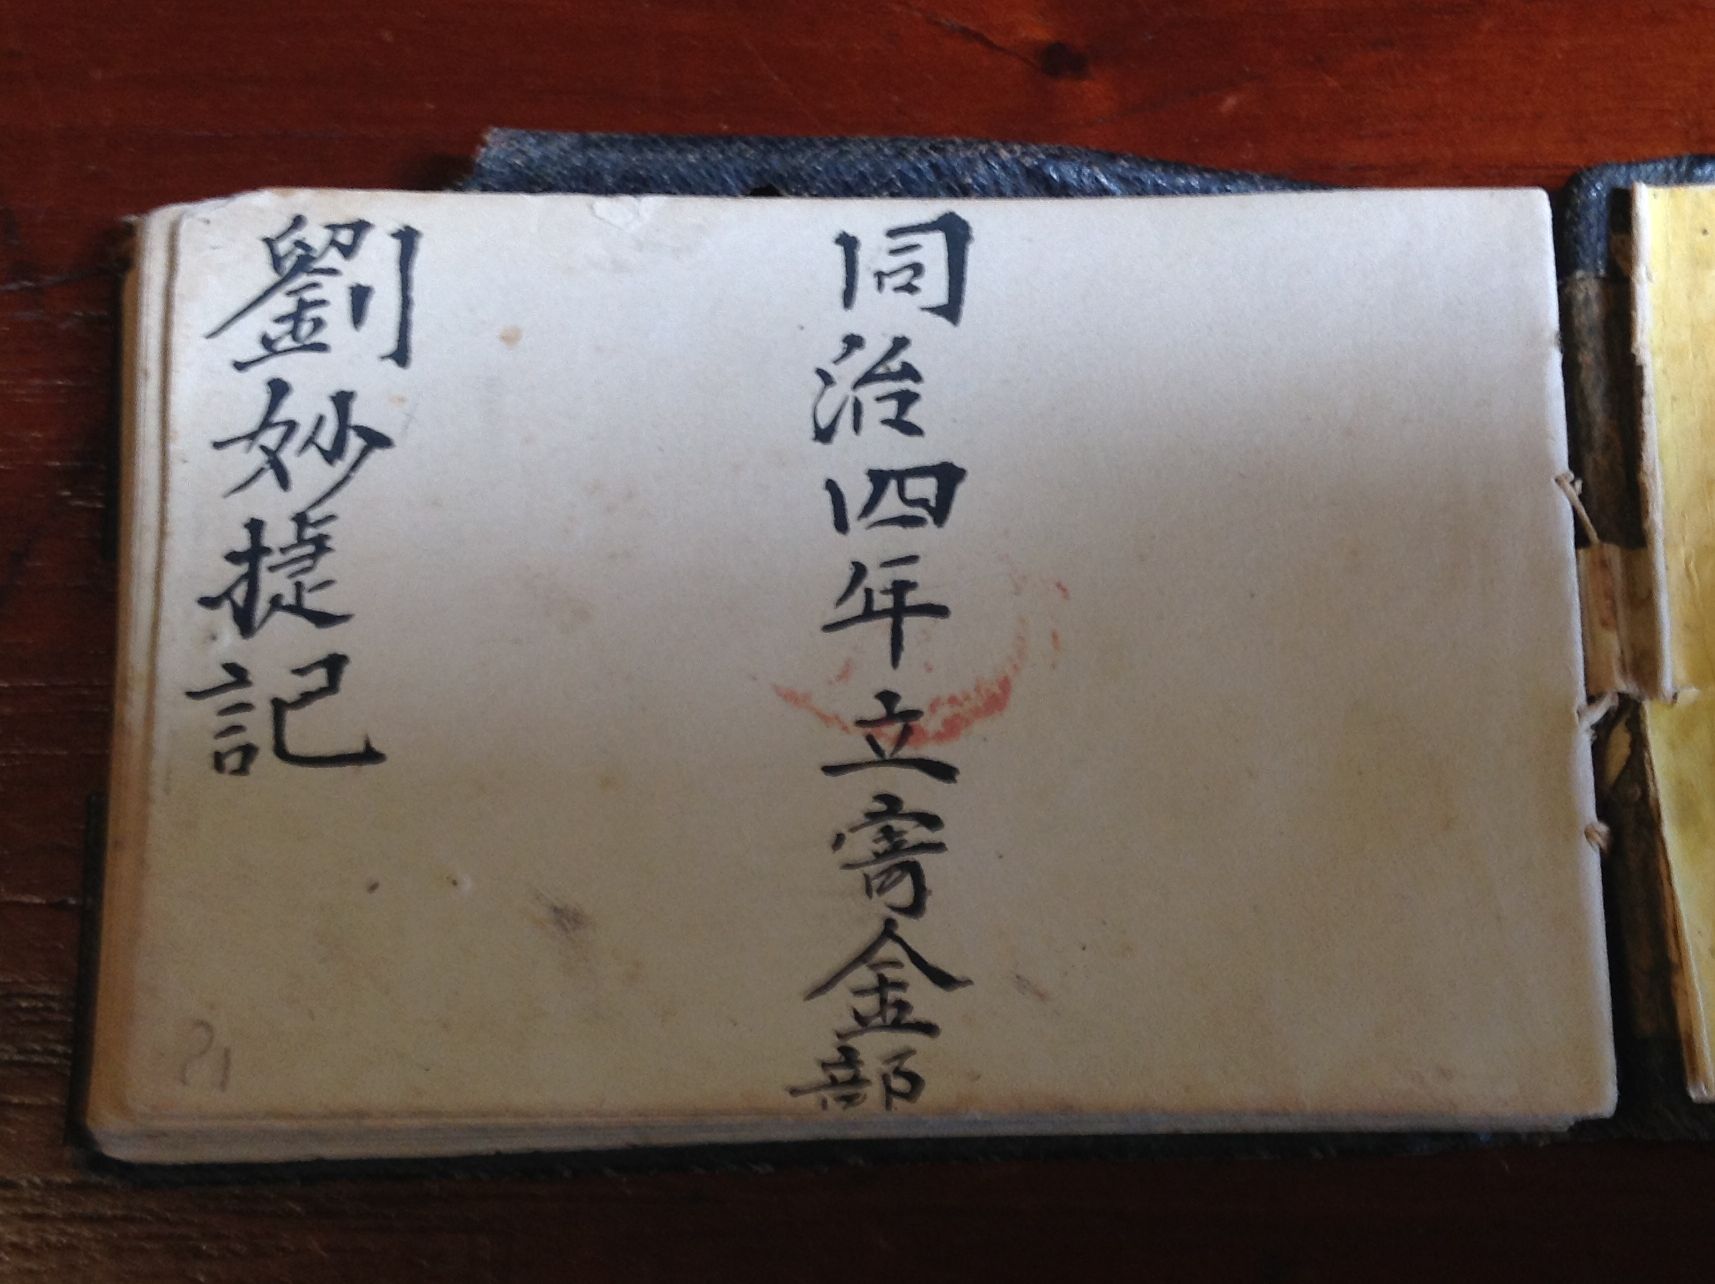 同治四年立寄金部
劉妙捷記